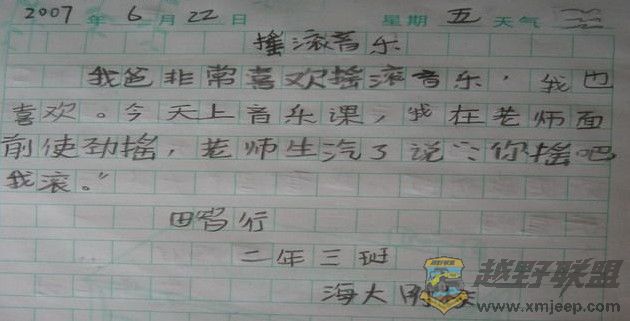 2007 年 6 月 22 日 星期 五 天气
摇滚音乐
我爸非常喜欢摇滚音乐,我也
喜欢。今天上音乐课,我在老师面
前使劲摇,老师生汽了说:“你摇吧
我滚。”
田智行
二年三班
海大附
越野联盟
www.xmjeep.com